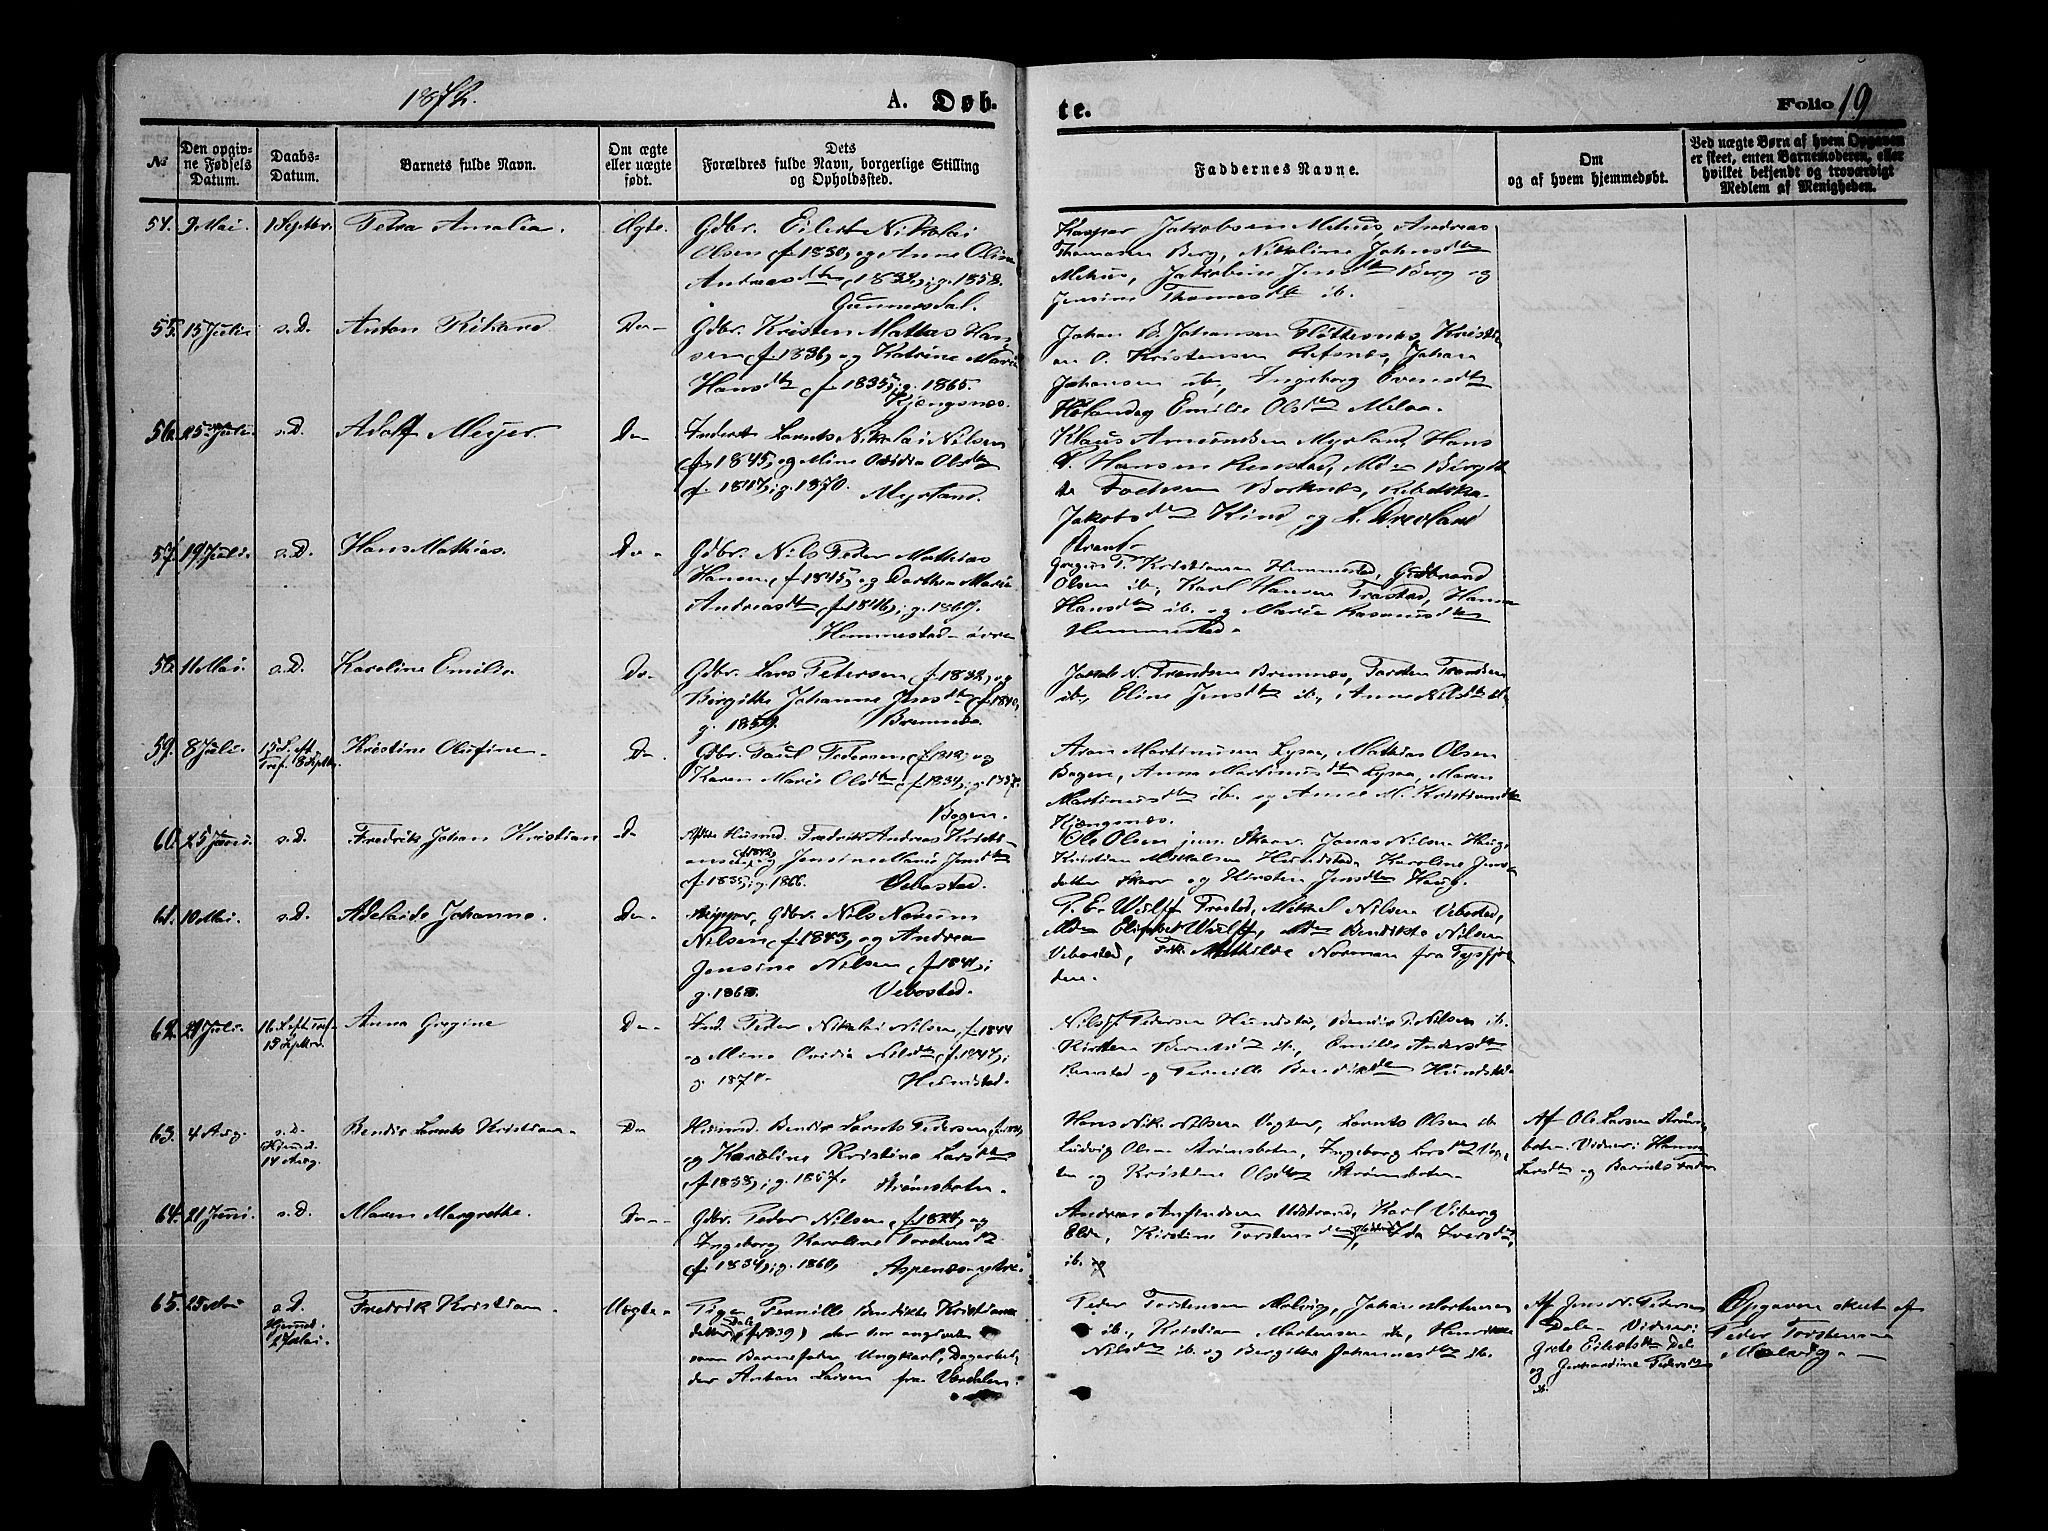 1872.
A. Døb-
te.
Folio 19
No
Den opgiv-
ne Fødsels
Datum.
Daabs-
Datum.
Barnets fulde Navn.
Om ægte
eller uægte
født.
Dets
Forældres fulde Navn, borgerlige Stilling
og Opholdssted.
Faddernes Navne.
Om
og af hvem hjemmedøbt.
Ved uægte Børn af hvem Opgaven
er skeet, enten Barnemoderen, eller
hvilket bekjendt og troværdigt
Medlem af Menigheden.
54. 9 Mai. 1 Septbr. Petra Amalia. Ægte.
Gdbr. Eilert Nikolai
Olsen (f. 1830) og Anne Olina
Andreasdtr (1834); g. 1858.
Gunnesdal.
Kaspar Jakobsen Mehus, Andreas
Thomasen Berg, Nikoline Jahnsdtr
Mehus, Jakobine Jensdtr Berg og
Jensine Thomasdtr ib.
55. 15 Juli. s.D. Anton Rikard Do-
Gdbr. Kristen Mathias Han
sen (f. 1836) og Katrine Marie
Hansdtr (f. 1835); g. 1865.
Kjengsnæs.
Johan B. Johansen Fløttesnæs, Krist
en O. Kristensen Refsnæs, Johan
Johansen ib., Ingeborg Evensdtr
Høland og Emilie Olsdtr Melaa.
56. 25 Juli. s.D. Adolf Meyer. Do-
Inderst Lornts Nikolai Nilsen
(f. 1845) og Mine Ovidia Olsdtr
(f. 1847); g. 1870. Myrland.
Klaus Amundsen Myrland, Hans
P. Hansen Renstad, Birgit
te Borknæs, Rebekka
Jakobsdtr Kind og
57. 19 Juli. s.D. Hans Mathias. Do-
Gdbr. Nils Peder Mathias
Hansen (f. 1845) og Dorthea Marie
Andreasdtr (f. 1846); g. 1869.
Hemmestad-øvre
Gregus T. Kristiansen Hemmestad, Gudbrand
Olsen ib., Karl Hansen Trastad, Hanna
Hansdtr ib. og Marie Rasmusdtr
Hemmestad.
58. 11 Mai. s.D. Karoline Emilie Do-
Gdbr. Lars Petersen (f. 1832) og
Birgitte Johanna Jensdtr (f. 1840)
g. 1859. Bremnæs.
Jakob N. Trondsen Bremnæs, Torsten Trondsen
ib., Eline Jensdtr ib., Anne Nilsdtr ib.
59. 8 Juli. 15 S. eft Tref. 8 Septbr. Kristine Olufine. Do-
Gdbr. Paul Pedersen (f. 1812) og
Karen Marie Olsdtr (f. 1834); g. 1857.
Bogen.
Aron Martinusen Lysaa, Mathias Olsen
Bogen, Anna Martinusdtr Lysaa, Maren
Martinusdtr ib. og Anne M. Kristiansdtr
Kjengsnæs.
60. 25 Juni. s.D. Fredrik Johan Kristian Do
Husmd. Fredrik Andreas Kristi-
ansen (f. 1842) og Jensine Marie Jensdtr
(f. 1835); g. 1866. Vebostad.
Ole Olsen jun. Skaar, Jonas Nilsen Haug,
Kristian Mikalsen Hundstad, Karoline Jens-
datter Skaar og Kirsten Jensdtr Haug.
61. 10 Mai. s.D. Adelaide Johanna. Do-
Skipper, Gdbr. Nils Norum
Nilsen (f. 1843) og Andrea
Jensine Nilsen (f. 1841);
g. 1868. Vebostad.
P. E. Wulff Trastad, Mikal Nilsen Vebostad,
Md. Elisabet Wulff, Md. Bendikte Nilsen
Vebostad, Frk. Mathilde Norman fra Tysfjor
den.
62. 21 Juli. 16 S. eft Tref. 15 Septbr. Anna Gregine Do-
Ind. Peder Nikolai Nilsen, f. 1844
og Mine Ovidia Nilsdtr (f. 1847);
g. 187 Hundstad.
Nils J. Pedersen Hundstad, Bendix P. Nilsen ib.
Kirsten Berntsdtr ib., Emilie Andersdtr
Renstad og Pernille Bendiksdtr Hundstad.
63. 4 Aug. s.D. Hjemd. 14 Aug. Bendix Lornts Kristian. Do
Husmd. Bendix Lornts Pedersen
og Karoline Kristine Larsdtr
(f. 1838); g. 1857. Strømsboten.
Hans Nik. Nilsen Vogten, Lornts Olsen ib.
Ludvig Olsen Strømsboten, Ingeborg Larsdtr
og Kristine Olsdtr Strømsboten.
Af Ole Larsen Strøms
boten. Vidner: Hanna
Larsdtr og Barnets Fader
64. 21 Juni. s.D. Maren Margrethe. Do-
Gdbr. Peder Nilsen (f. 1824) og
Ingeborg Karoline Torstensdtr
(f. 1834); g. 1860. Aspenæs-ytre.
Andreas Anfindsen Udstrand, Karl Viberg
Elde, Kirstine Torstensdtr, Ida Iversdtr
ib.
65. 25 Mai s.D. Hjemd. 2 Juli. Fredrik Kristian. Uægte
Pige Pernille Bendikte Kristians
datter Dale (f. 1839) der har angivet
som Barnefader Ungkarl, Dagarbei
der Anton Larsen fra Værdalen.
Peder Torstensen Molvig, Johan Mortensen
ib., Kristian Mortensen ib., Henrikke
Nilsdtr ib. og Bergitte Johannesdtr ib.
Af Jens N. Petersen
Dale. Vidner:
Grete Eilertsdtr Dale
og Gerhardine Pedersdtr
ib.
Opgaven skeet af
Peder Torstensen
Molvig.